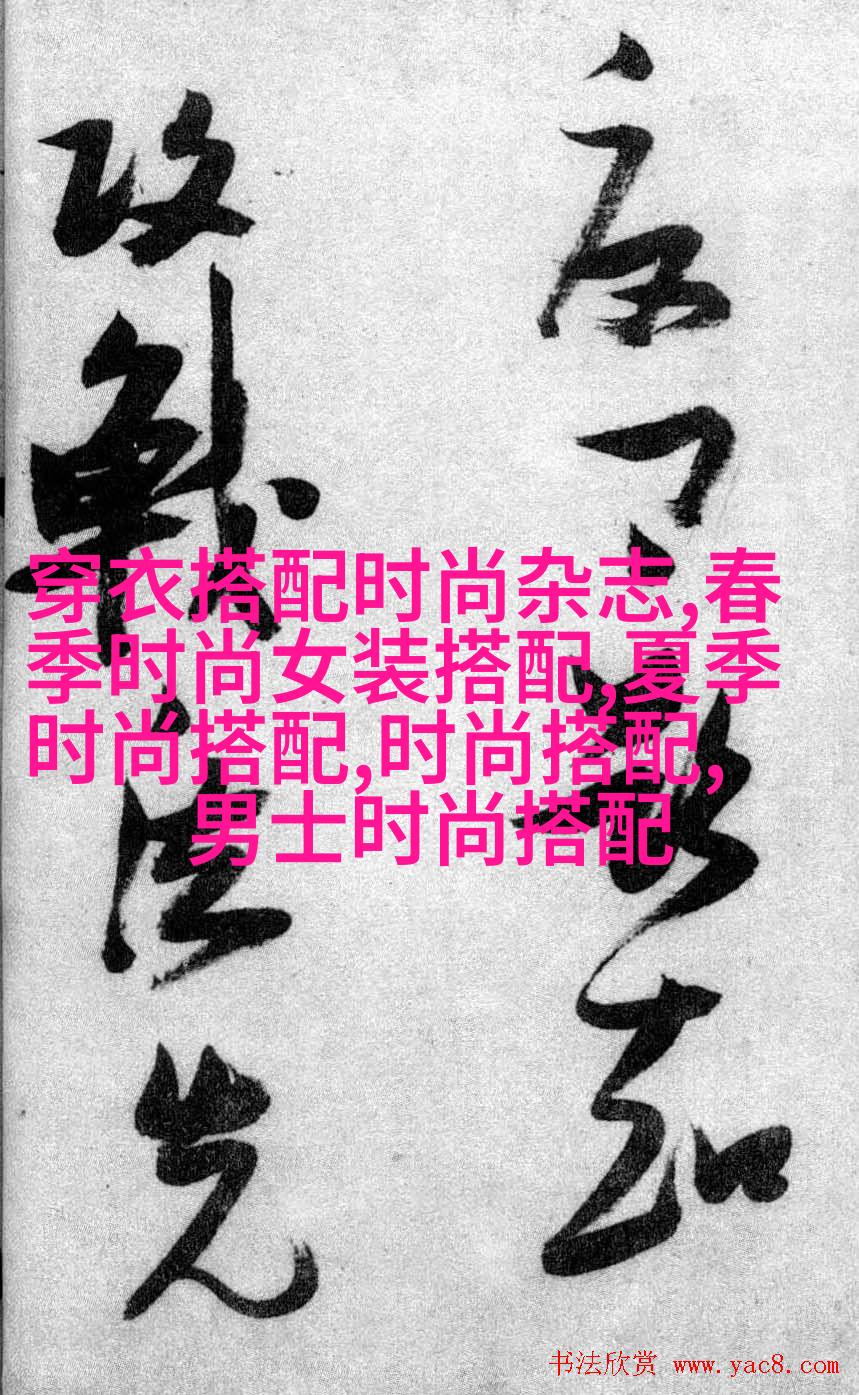 知
攻戰先
穿衣搭配时尚杂志,春
季时尚女装搭配,夏季
时尚搭配,时尚搭配,
男士时尚搭配
书法欣赏 www.yac8.com